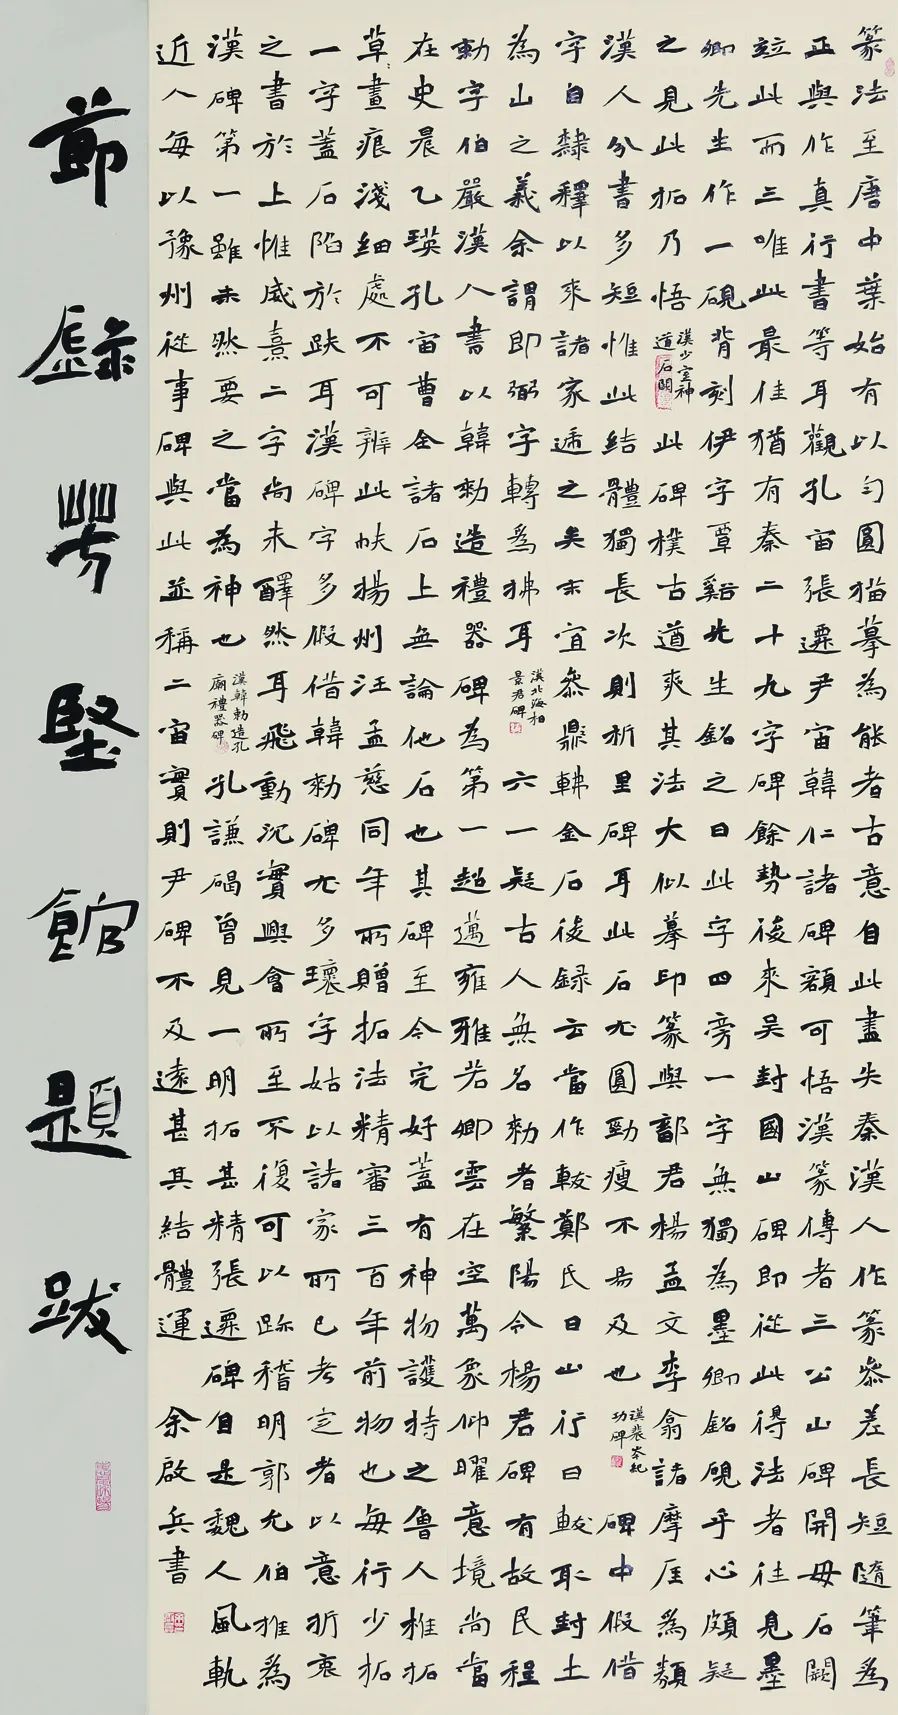 篆法至唐中葉始有以勻圓描摹為能者古意自此盡失秦漢人作篆參差長短隨筆為
正與作真行書等耳觀孔宙張遷尹宙韓仁諸碑額可悟漢篆傳者三公山碑開母石闕
竝此而三唯此最佳猶有秦二十九字碑餘勢後來吳封國山碑即從此得法者往見墨
卿先生作一硯背刻伊字覃谿先生銘之曰此字四旁一字無獨為墨卿銘硯乎心頗疑
之見此拓乃悟漢少室神道石闕此碑樸古遒爽其法大似摹印篆與鄐君楊孟文李翕諸摩厓為類
漢人分書多短惟此結體獨長次則析里碑耳此石尤圓勁瘦不易及也漢裴岑紀功碑碑中假借
字自隸釋以來諸家遞之矣末宜參鼎金石後録云當作軷鄭氏曰山行曰軷取封土
為山之義余謂即弼字轉為拂耳漢北海相景君碑六一疑古人無名勑者繁陽令楊君碑有故民程
勑字伯嚴漢人書以韓勑造禮器碑為第一超邁雍雅若卿雲在空萬象仰曜意境尚當
在史晨乙瑛孔宙曹全諸石上無論他石也其碑至今完好蓋有神物護持之魯人椎拓
草畫痕淺細處不可辨此帙揚州汪孟慈同年所贈拓法精審三百年前物也每行少拓
一字蓋石陷於趺耳漢碑字多假借韓勑碑尤多瓌字姑以諸家所已考定者以意折衷
之書於上惟威熹二字尚未醳然耳飛動沉實興會所至不復可以跡稽明郭允伯推為
漢碑第一雖未然要之當為神也漢韓勑造孔廟禮器碑孔謙碣曾見一明拓甚精張遷碑自是魏人風軌
近人每以豫州從事碑與此並稱二宙實則尹碑不及遠甚其結體運 余啟兵書
節錄堅館題跋